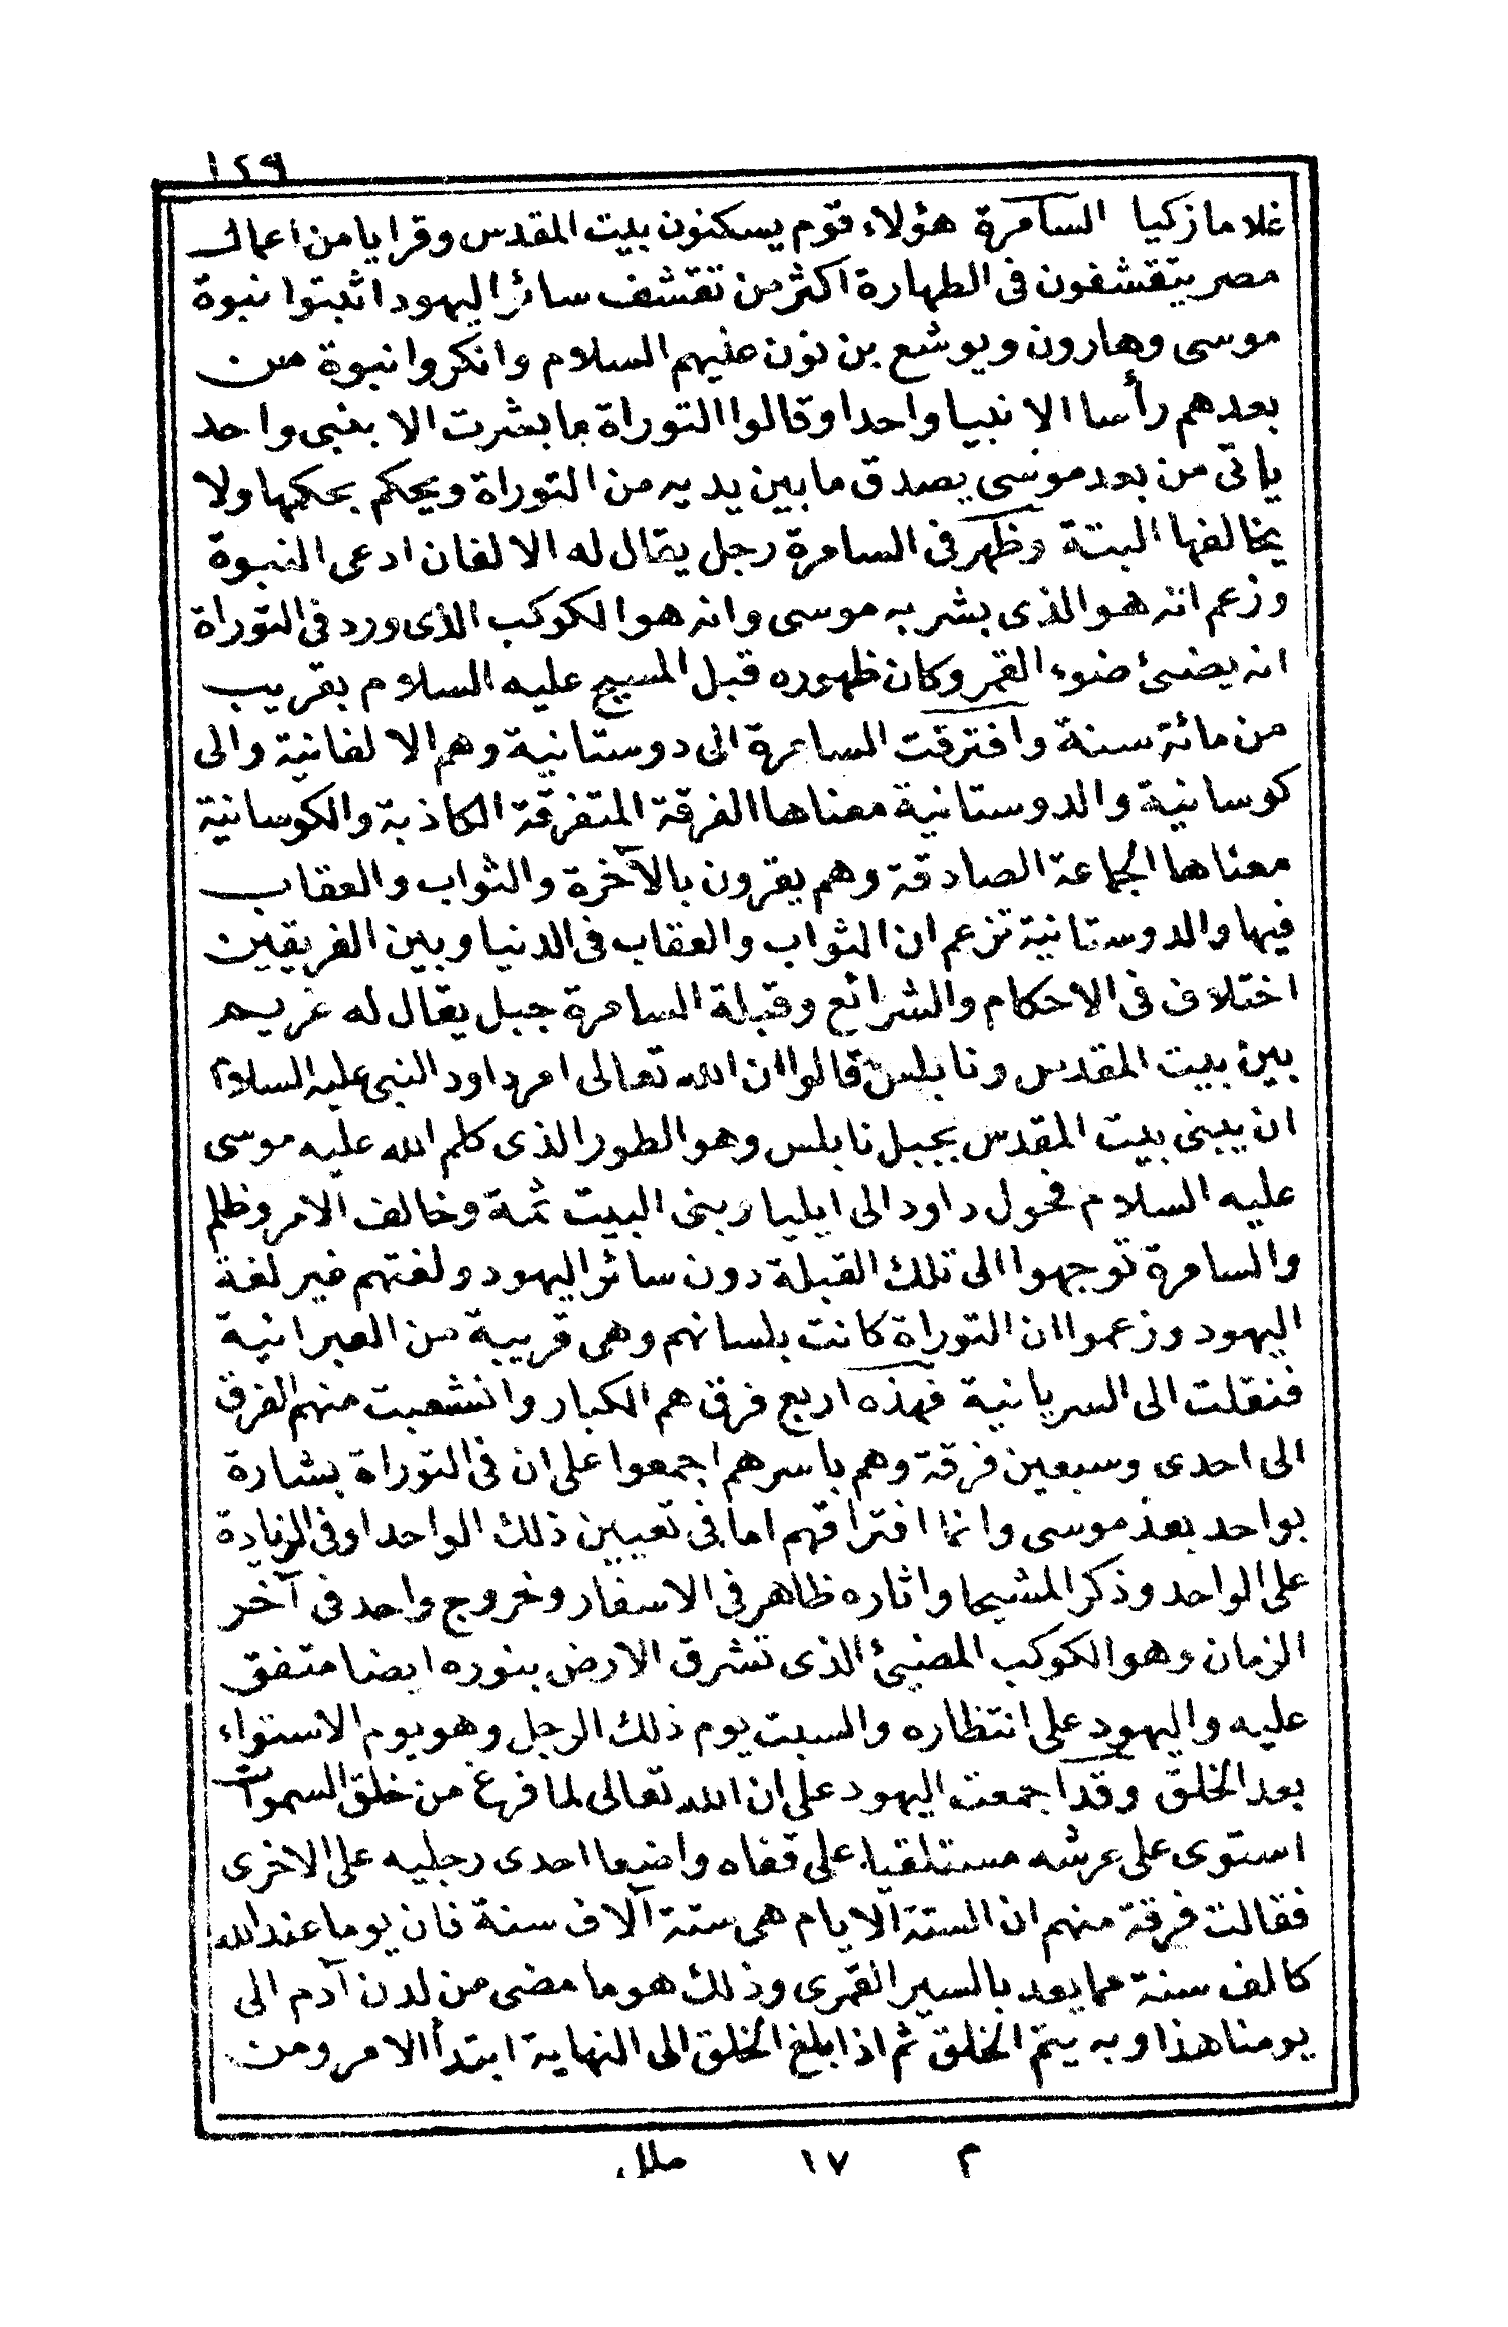 ١٢٩
غلاما زكيا السامرة هؤلاء قوم يسكنون بيت المقدس وقرايا من اعمال
مصر يتقشفون فى الطهارة اكثر من تقشف سائر اليهود اثبتوا نبوة
موسى وهارون ويوشع بن نون عليهم السلام وانكروا نبوة من
بعدهم رأسا الا نبيا واحدا وقالوا التوراة ما بشرت الا بنبى واحد
يأتى من بعد موسى يصدق ما بين يديه من التوراة ويحكم بحكمها ولا
يخالفها البتة وظهر فى السامرة رجل يقال له الالفان ادعى النبوة
وزعم انه هو الذى بشر به موسى وانه هو الكوكب الذى ورد فى التوراة
انه يضئ ضوء القمر وكان ظهوره قبل المسيح عليه السلام بقريب
من مائة سنة وافترقت السامرة الى دوستانية وهم الالفانية والى
كوسانية والدوستانية معناها الفرقة المتفرقة الكاذبة والكوسانية
معناها الجماعة الصادقة وهم يقرون بالآخرة والثواب والعقاب
فيها والدوستانية تزعم ان الثواب والعقاب فى الدنيا وبين الفريقين
اختلاف فى الاحكام والشرائع وقبلة السامرة جبل يقال له غريم
بين بيت المقدس ونابلس قالوا ان الله تعالى امر داود النبى عليه السلام
ان يبنى بيت المقدس بجبل نابلس وهو الطور الذى كلم الله عليه موسى
عليه السلام فحول داود الى ايليا وبنى البيت ثمة وخالف الامر وظلم
والسامرة توجهوا الى تلك القبلة دون سائر اليهود ولغتهم غير لغة
اليهود وزعموا ان التوراة كانت بلسانهم وهى قريبة من العبرانية
فنقلت الى السريانية فهذه اربع فرق هم الكبار وانشعبت منهم الفرق
الى احدى وسبعين فرقة وهم باسرهم اجمعوا على ان فى التوراة بشارة
بواحد بعد موسى وانما افتراقهم اما فى تعيين ذلك الواحد او فى الزيادة
على الواحد وذكر المشيحا واثاره ظاهر فى الاسفار وخروج واحد فى آخر
الزمان وهو الكوكب المضيئ الذى تشرق الارض بنوره ايضا متفق
عليه واليهود على انتظاره والسبت يوم ذلك الرجل وهو يوم الاستواء
بعد الخلق وقد اجمعت اليهود على ان الله تعالى لما فرغ من خلق السموات
استوى على عرشه مستلقيا على قفاه واضعا احدى رجليه على الاخرى
فقالت فرقة منهم ان الستة الايام هى ستة آلاف سنة فان يوما عند الله
كالف سنة مما يعد بالسير القمرى وذلك هو ما مضى من لدن آدم الى
يومنا هذا وبه يتم الخلق ثم اذا بلغ الخلق الى النهاية ابتدأ الامر ومن
م ١٧ ملل